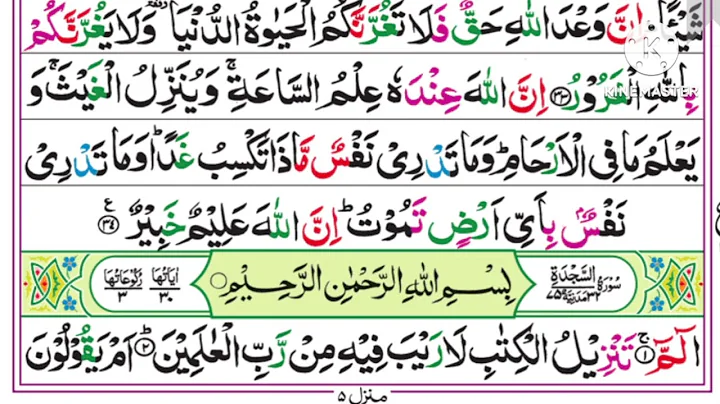 شَيْـًٔا ؕ اِنَّ وَعْدَ اللّٰهِ حَقٌّ فَلَا تَغُرَّنَّكُمُ الْحَيٰوةُ الدُّنْيَا ۥ وَلَا يَغُرَّنَّكُمْ
بِاللّٰهِ الْغَرُوْرُ ﴿۳۳﴾ اِنَّ اللّٰهَ عِنْدَهٗ عِلْمُ السَّاعَةِ ۚ وَيُنَزِّلُ الْغَيْثَ ۚ وَ
KINEMASTER
يَعْلَمُ مَا فِى الْاَرْحَامِ ؕ وَمَا تَدْرِىْ نَفْسٌ مَّاذَا تَكْسِبُ غَدًا ؕ وَمَا تَدْرِىْ
نَفْسٌۢ بِاَىِّ اَرْضٍ تَمُوْتُ ؕ اِنَّ اللّٰهَ عَلِيْمٌ خَبِيْرٌ ﴿۳۴﴾ ع
سُوْرَةُ السَّجْدَةِ ۳۲ مَدَنِيَّةٌ ۷۵ بِسْمِ اللّٰهِ الرَّحْمٰنِ الرَّحِيْمِ اٰيَاتُهَا ۳۰ رُكُوْعَاتُهَا ۳
الٓمّٓ ﴿۱﴾ تَنْزِيْلُ الْكِتٰبِ لَا رَيْبَ فِيْهِ مِنْ رَّبِّ الْعٰلَمِيْنَ ﴿۲﴾ اَمْ يَقُوْلُوْنَ
منزل ۵